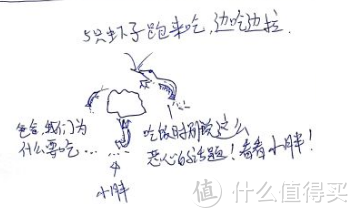 5只虾子跑来吃,边吃边拉.
爸爸,我们为
什么要吃……
吃饭时别说这么
恶心的话题!看看小胖!
小胖
值 什么值得买